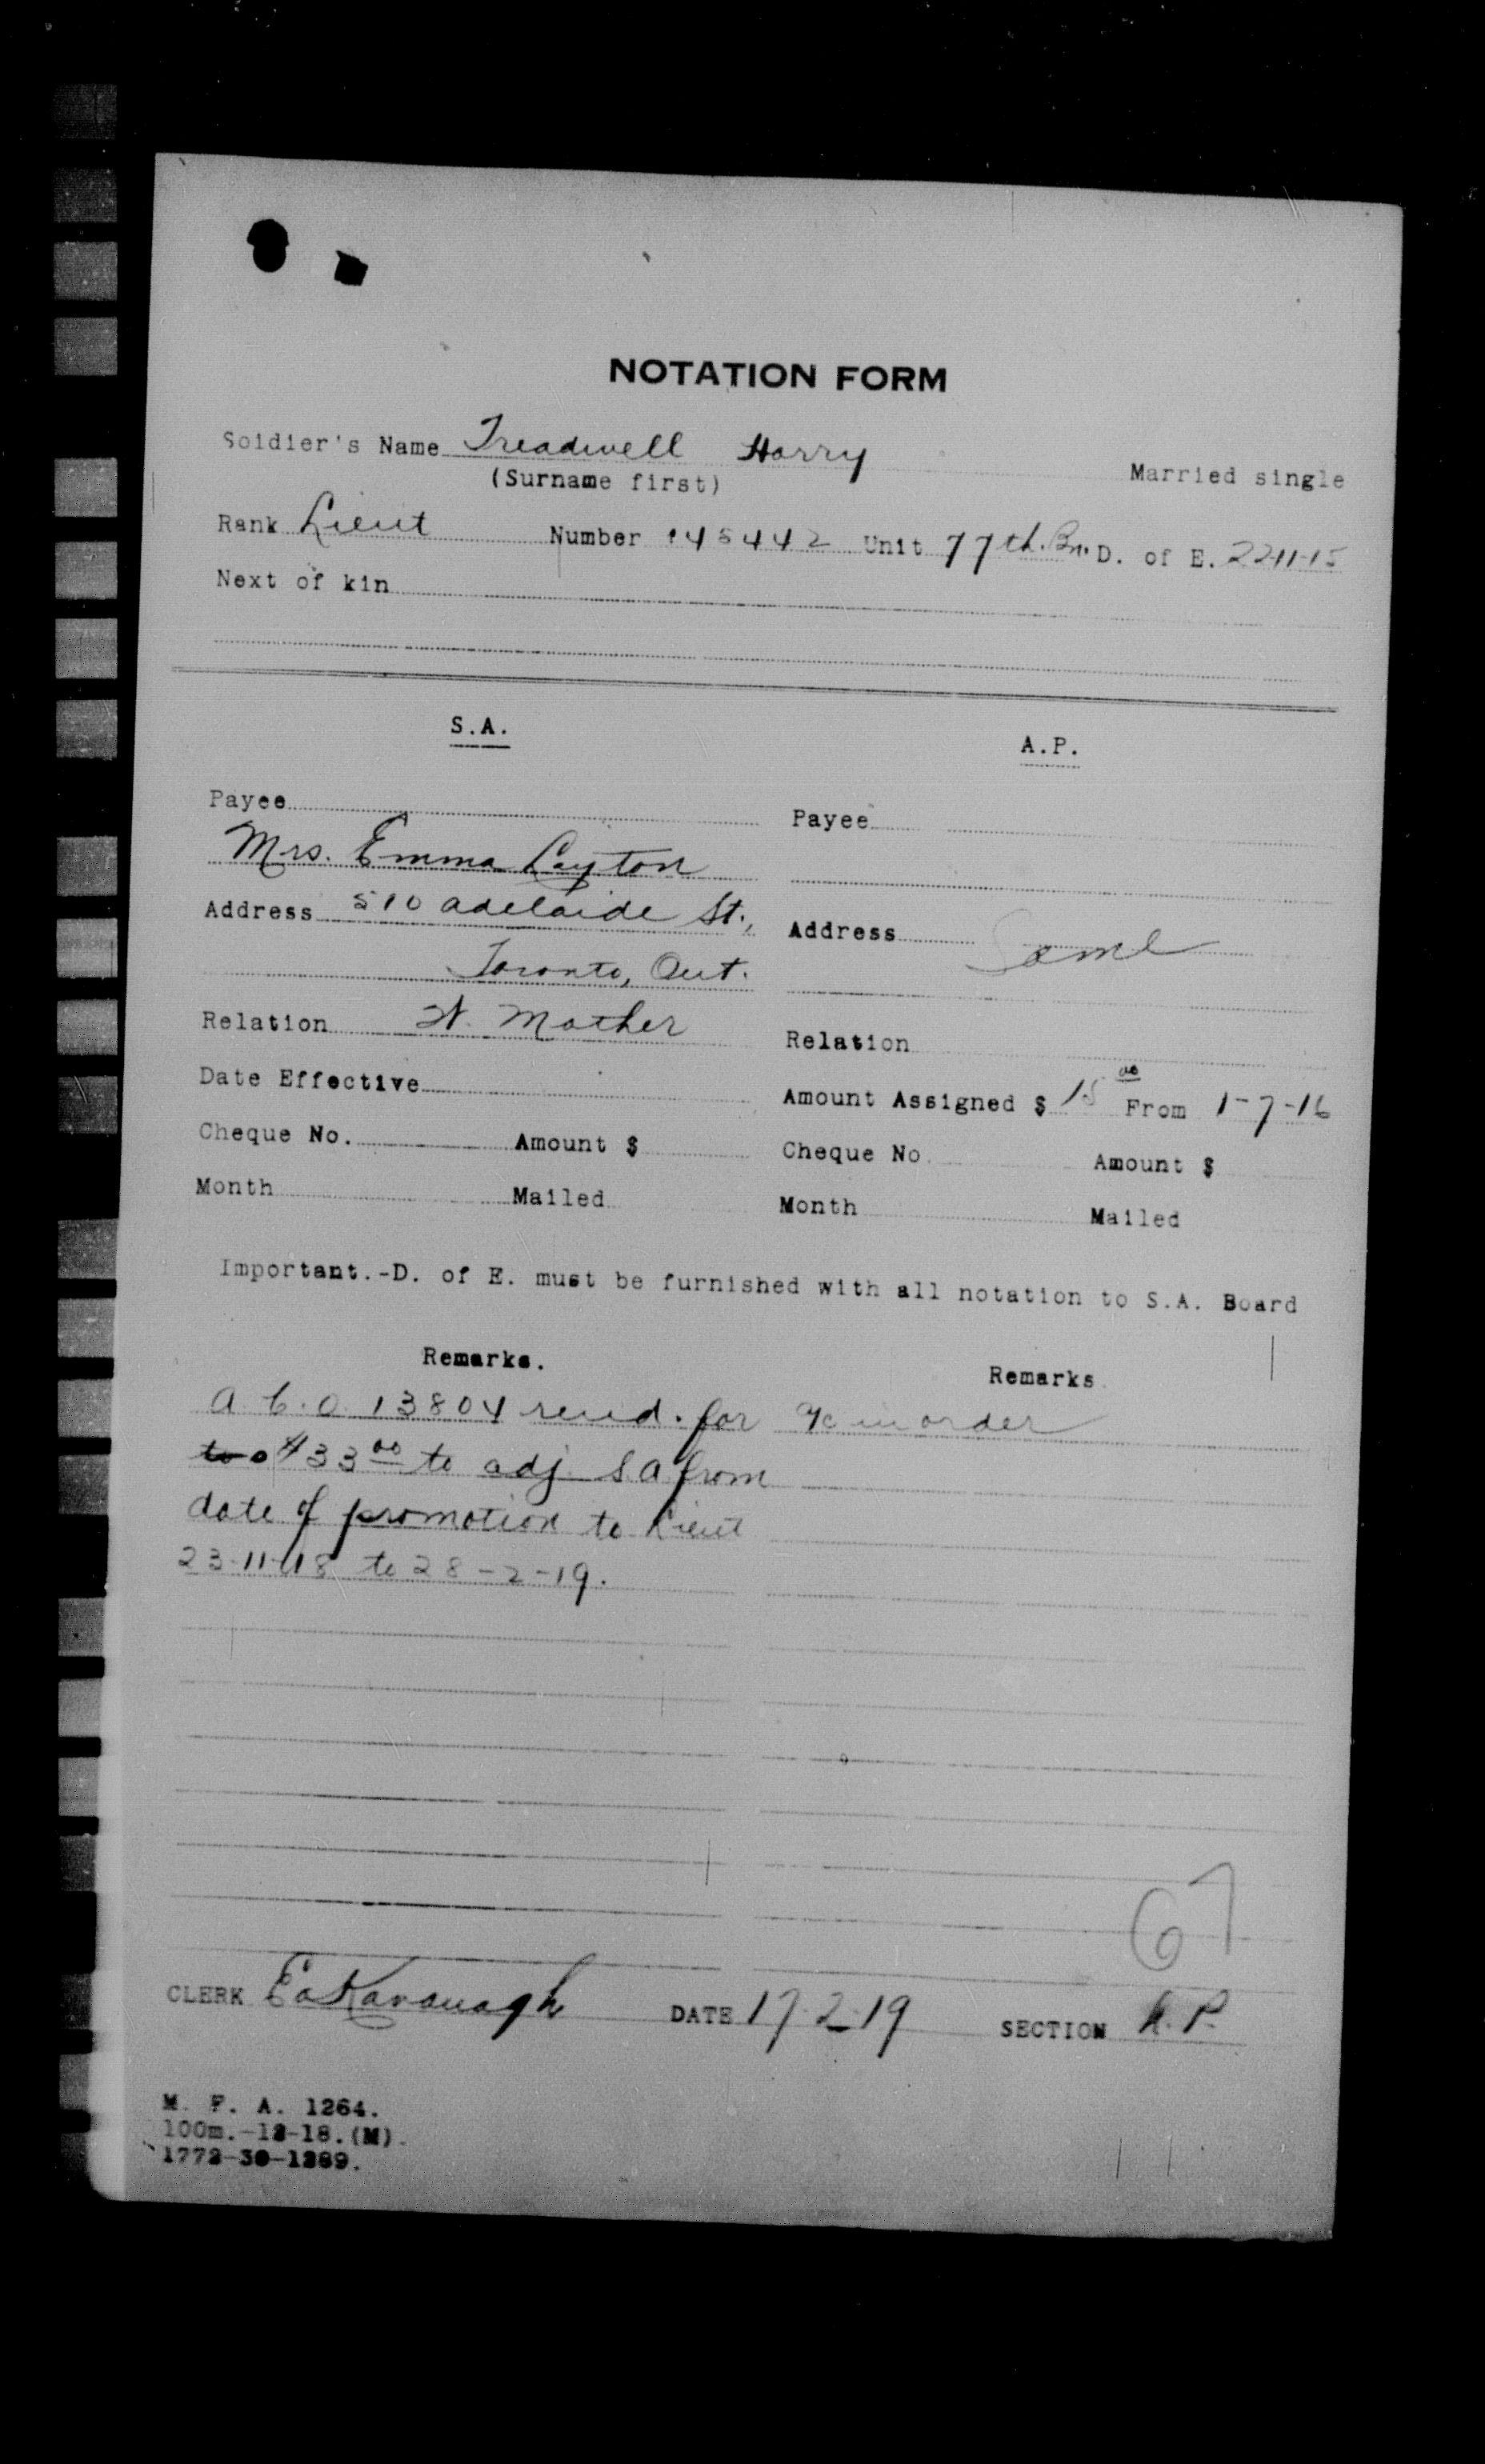 NOTATION FORM
Soldier's Name Treadwell Harry
(Surname first) Married single
Rank Lieut Number 145442 Unit 77th. Bn. D. of E. 22-11-15
Next of kin
S.A. A.P.
Payee Payee
Mrs. Emma Layton
Address 510 Adelaide St., Address Same
Toronto, Ont.
Relation W. Mother Relation
Date Effective Amount Assigned $ 15 00 From 1-7-16
Cheque No. Amount $ Cheque No Amount $
Month Mailed Month Mailed
Important.-D. of E. must be furnished with all notation to S.A. Board
Remarks. Remarks
13804 for in order
$33 00 to adj. S A from
date of promotion to Lieut
23-11-18 to 28-2-19.
67
CLERK Kavanagh DATE 17-2-19 SECTION A.P.
M. F. A. 1264.
100m.-12-18.(M).
1772-39-1289.